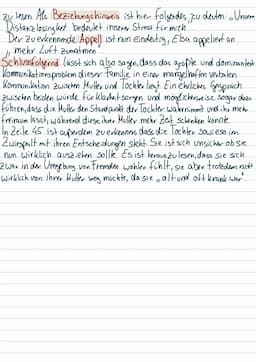 zu lesen. Als Beziehungshinweis ist hier folgendes zu deuten: „Unsere
Distanzlosigkeit bedeutet innere Stress für mich
Der zu erkennende Appell ist nun eindeutig, Elsa appelliert an
mehr Luft zum atmen
Schlussfolgernd lässt sich also sagen, dass das größte und dominanteste
Kommunikationsproblem dieser Familie in einer mangelhaften verbalen
Kommunikation zwischen Mutter und Tochter liegt. Ein ehrliches Gespräch
zwischen beiden würde für Klarheit sorgen und möglicherweise sogar dazu
führen, dass die Mutter den Standpunkt der Tochter wahrnimmt und ihr mehr
Freiraum lässt, während diese ihrer Mutter mehr Zeit schenken könnte.
In Zeile 45 ist außerdem zu erkennen, dass die Tochter sowieso im
Zwiespalt mit ihren Entscheidungen steht. Sie ist sich unsicher ob sie
nun wirklich ausziehen sollte. Es ist herauszulesen, dass sie sich
zwar in der Umgebung von Fremden wohler fühlt, sie aber trotzdem nicht
wirklich von ihrer Mutter weg möchte, da sie „alt und oft krank war"